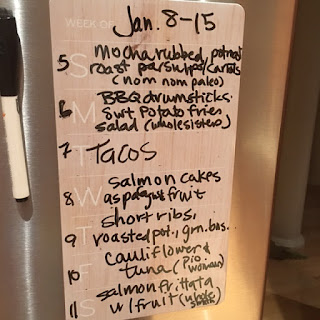 WEEK OF
Jan. 8-15
S
5 Mocha rubbed potroast
roast parsnips/carrots
(nom nom paleo)
M
6 BBQ drumsticks.
swt potato fries
salad (wholesisters)
T
7 Tacos
W
8 salmon cakes
asparagus fruit
T
short ribs,
9 roasted pot., grn. bns.
F
10 cauliflower &
tuna (pio. woman)
S
11 salmon frittata
w/ fruit (whole sisters)